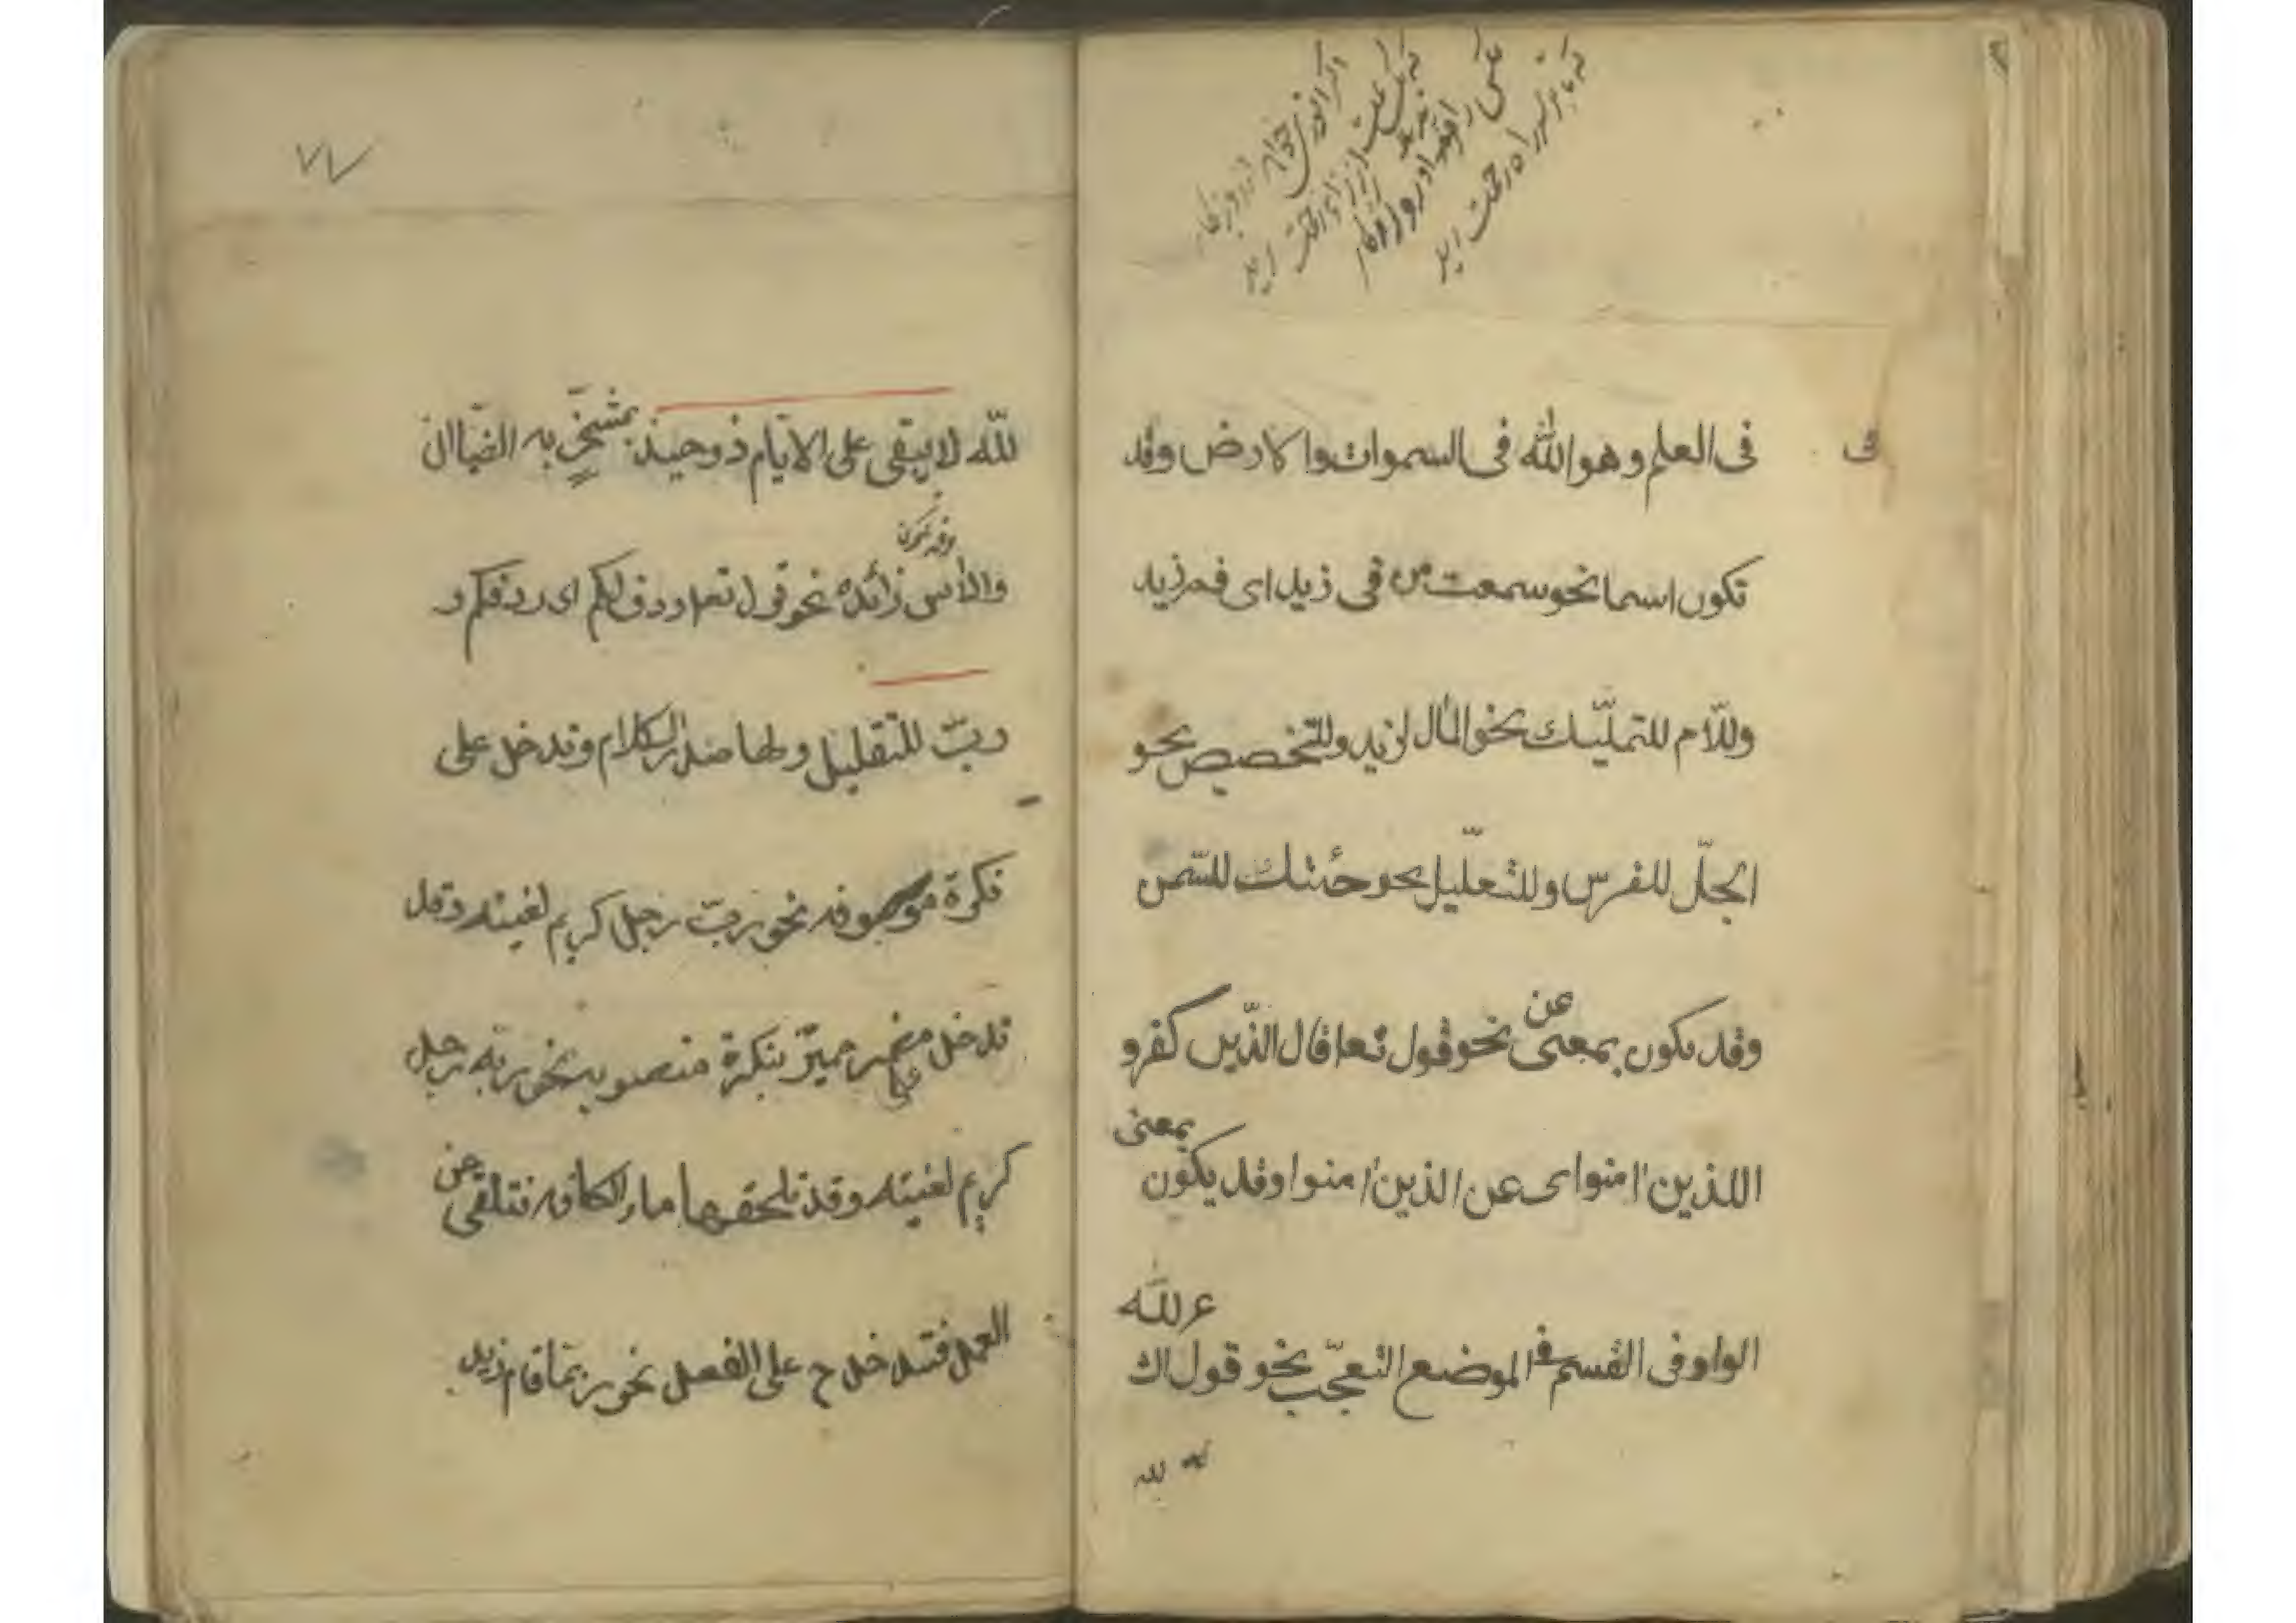 فى
فى العلم وهو الله فى السموات والارض وقد
تكون اسما نحو سمعت من فى زيد اى فم زيد
وللّام للتمليّك نحو المال لزيد وللتخصيص نحو
الجلّ للفرس وللتعليل نحو جئتك للسّمن
وقد يكون بمعنى عن نحو قول تعا قال الذّين كفرو
اللذين امنوا اى عن الذين امنوا وقد يكون بمعنى
الواو فى القسم فى الموضع التعجّب نحو قول الش
عر لله
لله
٧٧
للّه لا يبقى على الايّام ذو حيد بمشمخرّ به الضيّان
والاس وقد تكون زائده نحو قول تعا ردف لكم اى ردفكم و
ربّ للتقليل ولها صدر الكلام وتدخل على
نكرة موصوفه نحو ربّ رجل كريم لقيته وقد
تدخل على مضمر مميّز بنكرة منصوبه نحو ربّه رجل
كريم لقيته وقد تلحقها ما الكافه فتلقى عن
العمل فتدخل ح على الفعل نحو ربّما قام زيد